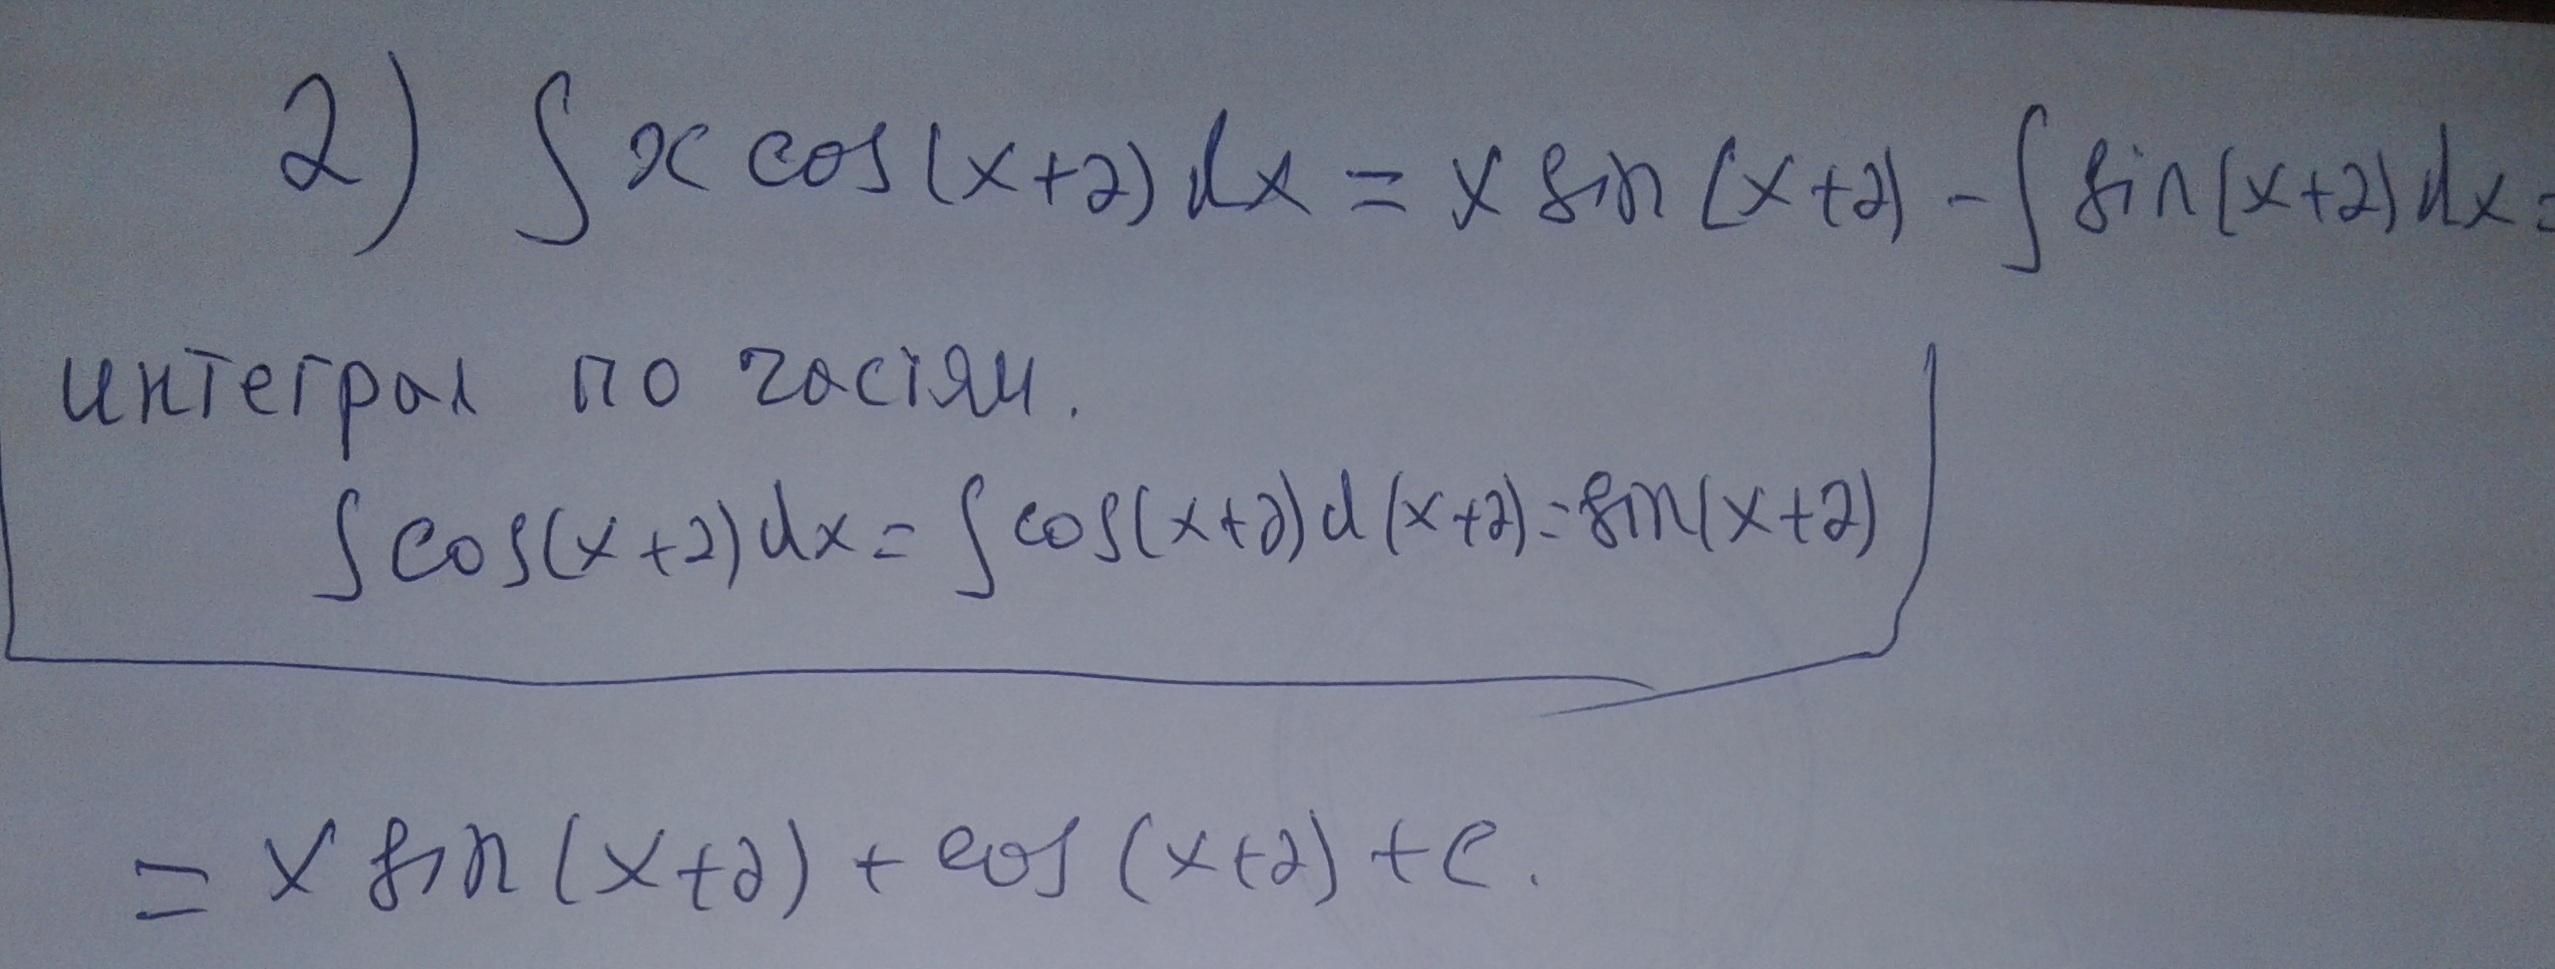 2) ∫ x cos(x+2) dx = x sin(x+2) - ∫ sin(x+2) dx =
интеграл по частям.
∫ cos(x+2) dx = ∫ cos(x+2) d(x+2) = sin(x+2)
= x sin(x+2) + cos(x+2) + c.